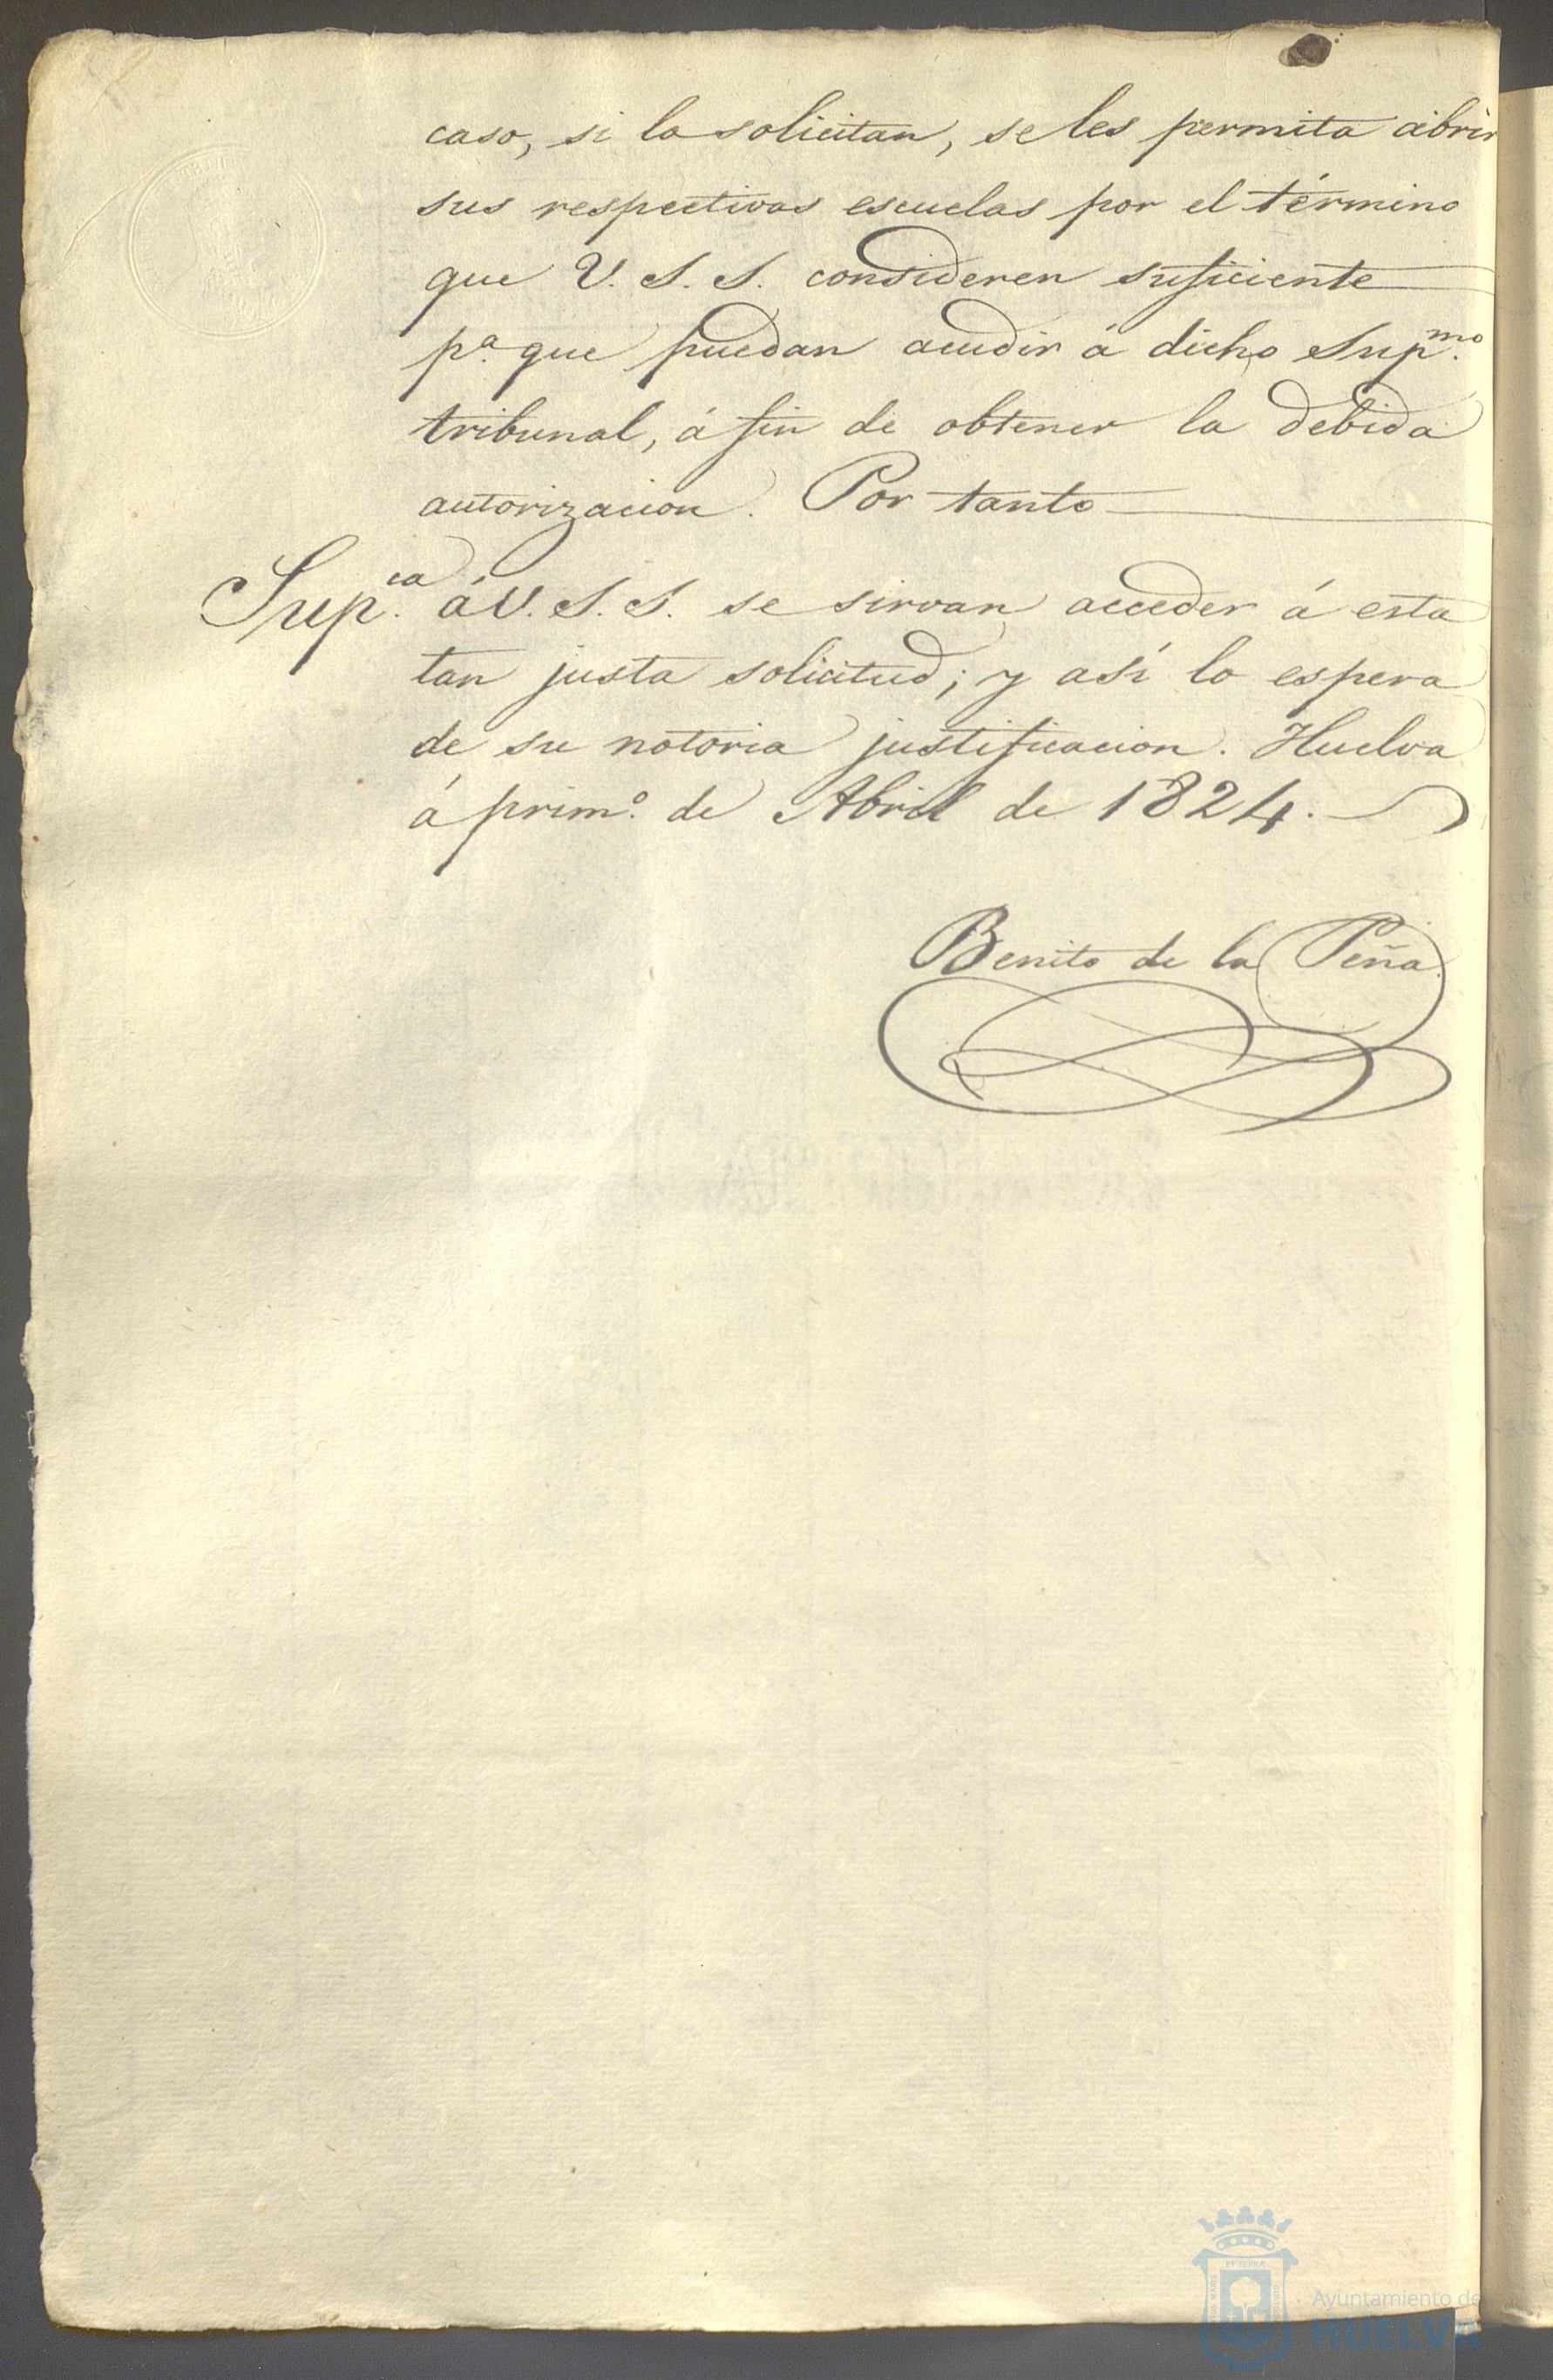 caso, si lo solicitan, se les permita abrir
sus respectivas escuelas por el término
que V. S. S. consideren suficiente
pª. que puedan acudir á dicho Supmo.
tribunal, á fin de obtener la debida
autorizacion. Por tanto
Supca. á V. S. S. se sirvan acceder á esta
tan justa solicitud; y así lo espera
de su notoria justificacion. Huelva
á primº. de Abril de 1824.
Benito de la Peña
Ayuntamiento de
HUELVA